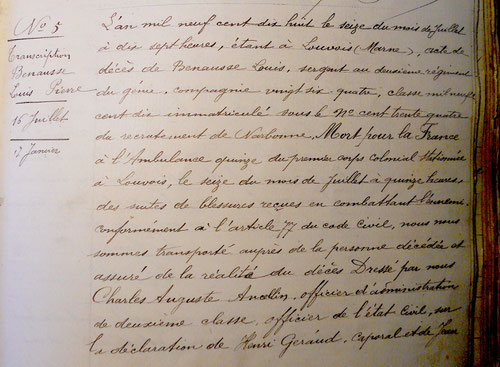 No 5
Transcription
Benausse
Louis Pierre
16 Juillet
17 Janvier
L'an mil neuf cent dix huit le seize du mois de Juillet
à dix sept heures, étant à Louvois (Marne), acte de
décès de Benausse Louis, sergent au deuxième régiment
du génie, compagnie vingt six quatre, classe mil neuf
cent dix immatriculé sous le No cent trente quatre
du recrutement de Narbonne, Mort pour la France
à l'Ambulance quinze du premier corps colonial stationnée
à Louvois, le seize du mois de Juillet à quinze heures,
des suites de blessures reçues en combattant l'ennemi.
Conformément à l'article 77 du code civil, nous nous
sommes transporté auprès de la personne décédée et
assuré de la réalité du décès Dressé par nous
Charles Auguste Ancelin, officier d'administration
de deuxième classe, officier de l'état civil, sur
la déclaration de Henri Géraud, caporal et de Jean